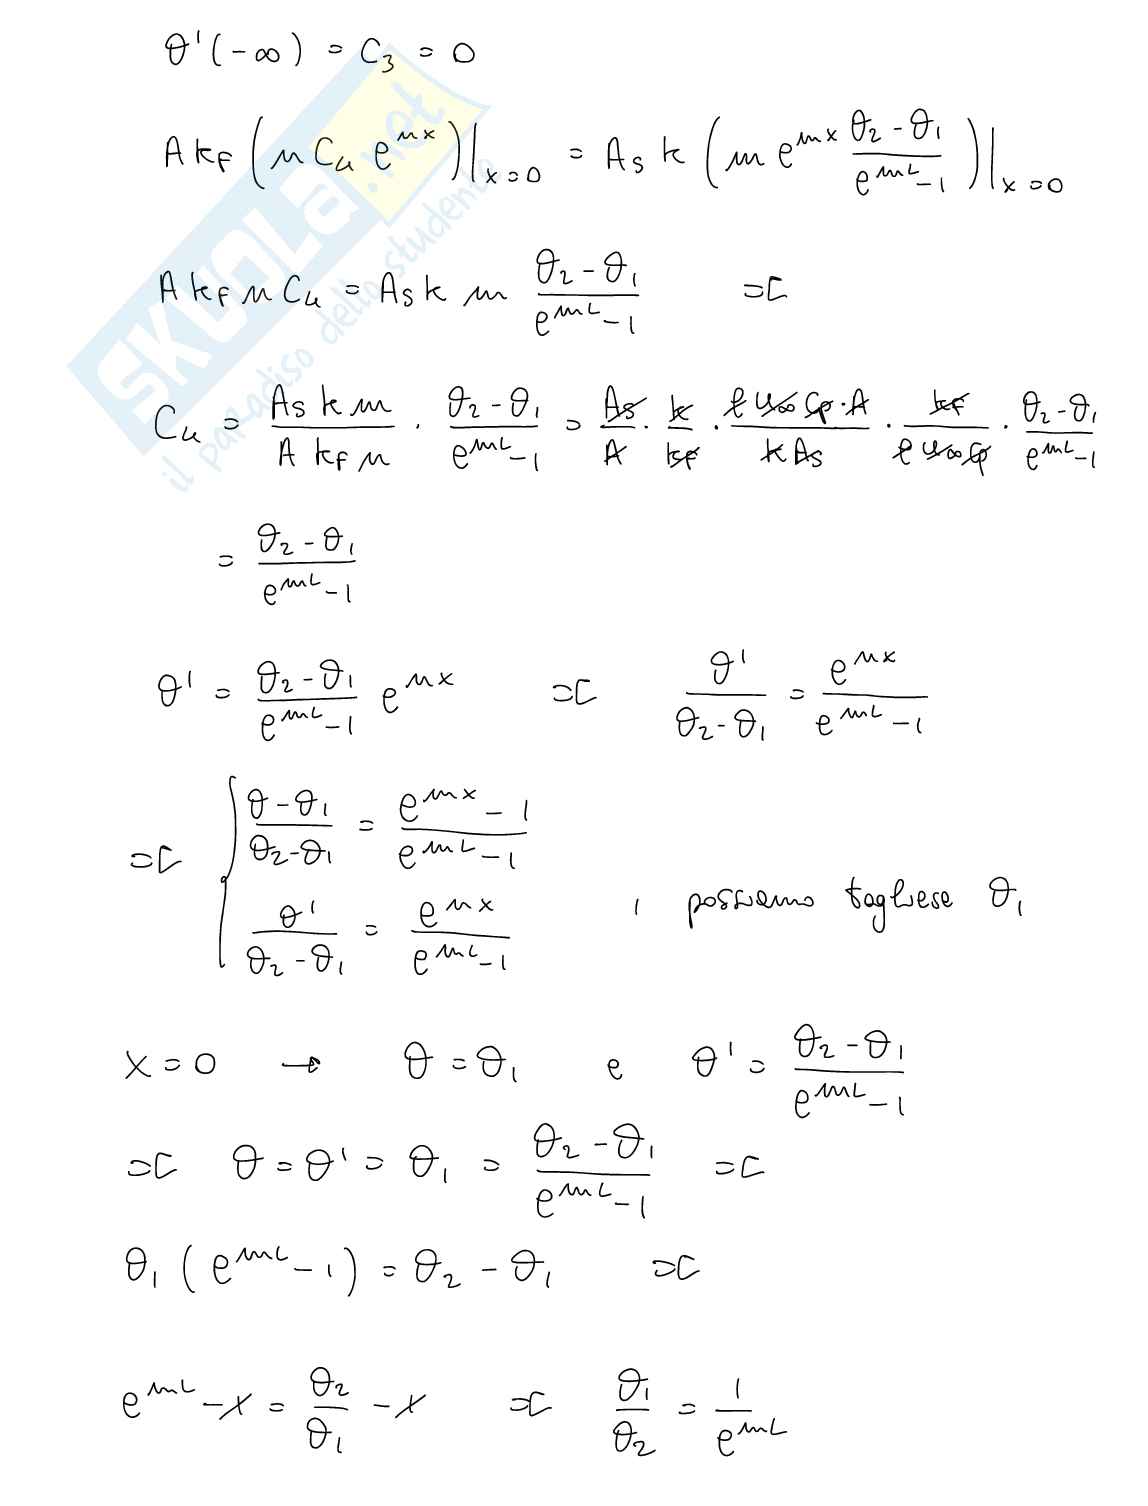 θ'(-∞) = C₃ = 0
A k_F (n C₄ e^{nx})|_{x=0} = A_S k (m e^{mx} (θ₂-θ₁)/(e^{mL}-1))|_{x=0}
A k_F n C₄ = A_S k m (θ₂-θ₁)/(e^{mL}-1) ⇒
C₄ = (A_S k m)/(A k_F n) · (θ₂-θ₁)/(e^{mL}-1) = A_S/A · k/k_F · (ρ u∞ Cp · A)/(k A_S) · k_F/(ρ u∞ Cp) · (θ₂-θ₁)/(e^{mL}-1)
= (θ₂-θ₁)/(e^{mL}-1)
θ' = (θ₂-θ₁)/(e^{mL}-1) e^{nx} ⇒ θ'/(θ₂-θ₁) = e^{nx}/(e^{mL}-1)
⇒ { (θ-θ₁)/(θ₂-θ₁) = (e^{mx}-1)/(e^{mL}-1)
θ'/(θ₂-θ₁) = e^{nx}/(e^{mL}-1) , possiamo togliere θ₁
x=0 → θ=θ₁ e θ' = (θ₂-θ₁)/(e^{mL}-1)
⇒ θ=θ'=θ₁ = (θ₂-θ₁)/(e^{mL}-1) ⇒
θ₁(e^{mL}-1) = θ₂-θ₁ ⇒
e^{mL}-1 = θ₂/θ₁ -1 ⇒ θ₁/θ₂ = 1/e^{mL}
SKUOLA.net
il paradiso dello studente